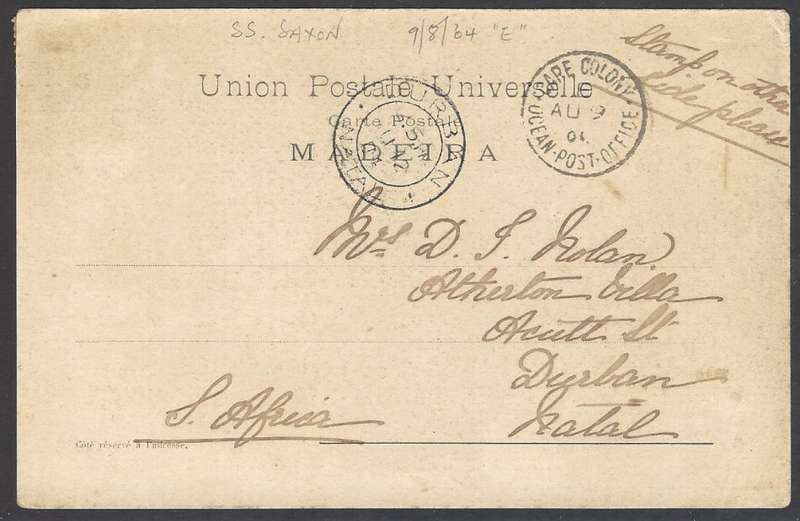 SS. SAXON 9/8/04 "E"
Stamp on other
side please
Union Postale Universelle
Carte Postale
MADEIRA
CAPE COLONY
AU 9
04
OCEAN-POST-OFFICE
DURBAN
NATAL
Mrs D. J. Nolan
Atherton Villa
Acutt St
Durban
Natal
S. Africa
Côté réservé à l'adresse.